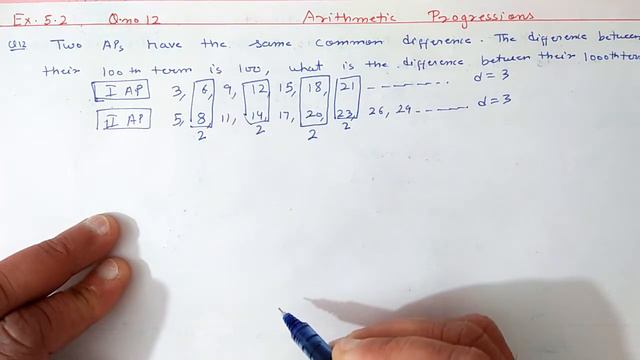 Ex. 5.2 Q.no 12 Arithmetic Progressions
Q12 Two APs have the same common difference. The difference between
their 100th term is 100, what is the difference between their 1000th term
I AP 3, 6, 9, 12, 15, 18, 21 ---------- d = 3
II AP 5, 8, 11, 14, 17, 20, 23, 26, 29 ------- d = 3
2 2 2 2